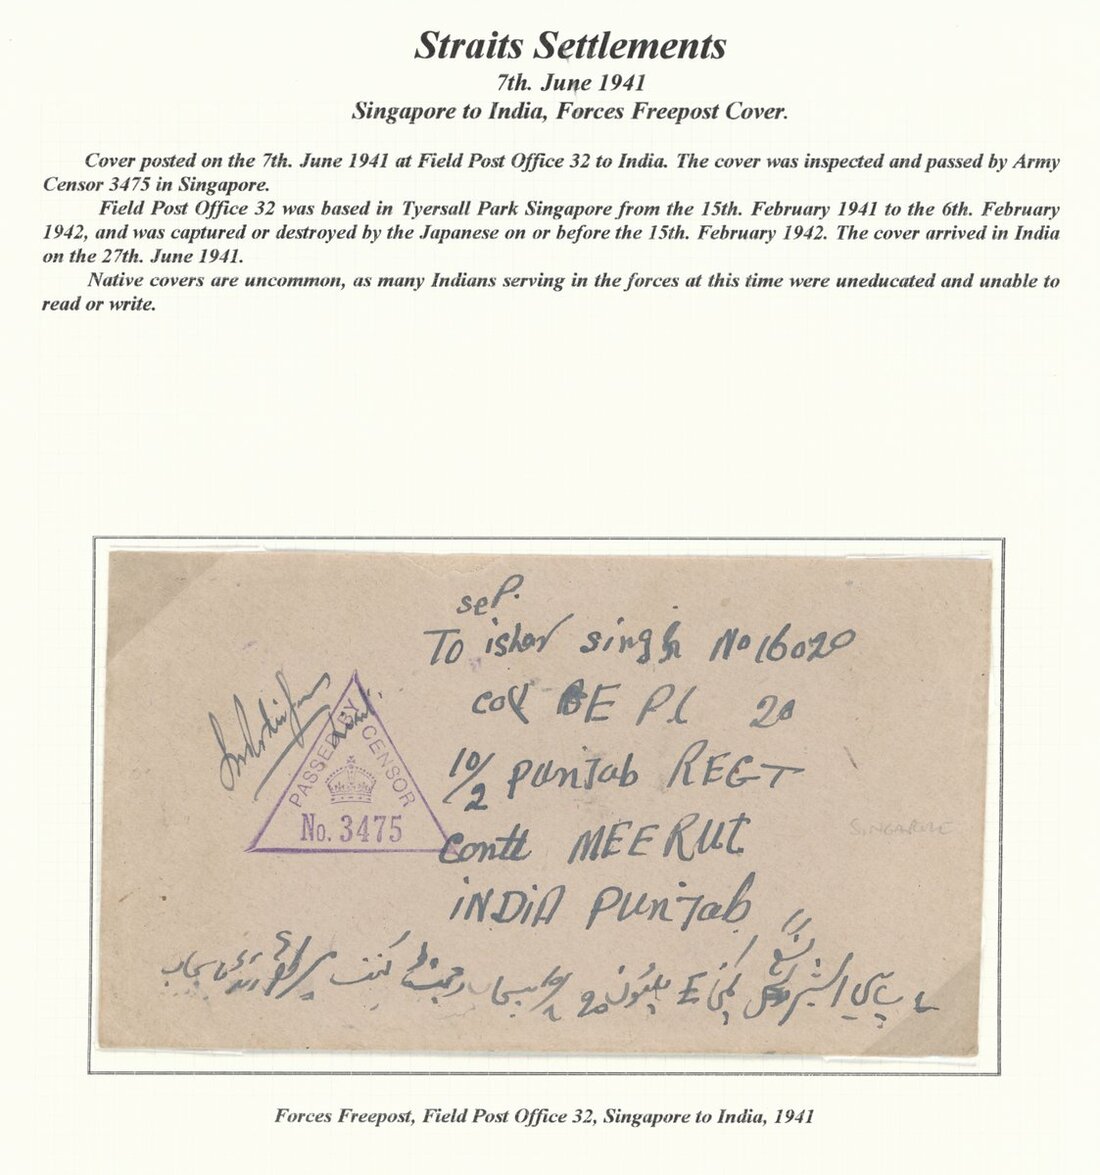 Straits Settlements
7th. June 1941
Singapore to India, Forces Freepost Cover.
Cover posted on the 7th. June 1941 at Field Post Office 32 to India. The cover was inspected and passed by Army
Censor 3475 in Singapore.
Field Post Office 32 was based in Tyersall Park Singapore from the 15th. February 1941 to the 6th. February
1942, and was captured or destroyed by the Japanese on or before the 15th. February 1942. The cover arrived in India
on the 27th. June 1941.
Native covers are uncommon, as many Indians serving in the forces at this time were uneducated and unable to
read or write.
seP.
To ishar singh No 16020
coy E Pl 20
10/2 punjab REGT
Contt MEERUt
iNDiA PunJab
PASSED BY CENSOR
No. 3475
SINGAPORE
E پلٹون 20
رجمنٹ
Forces Freepost, Field Post Office 32, Singapore to India, 1941